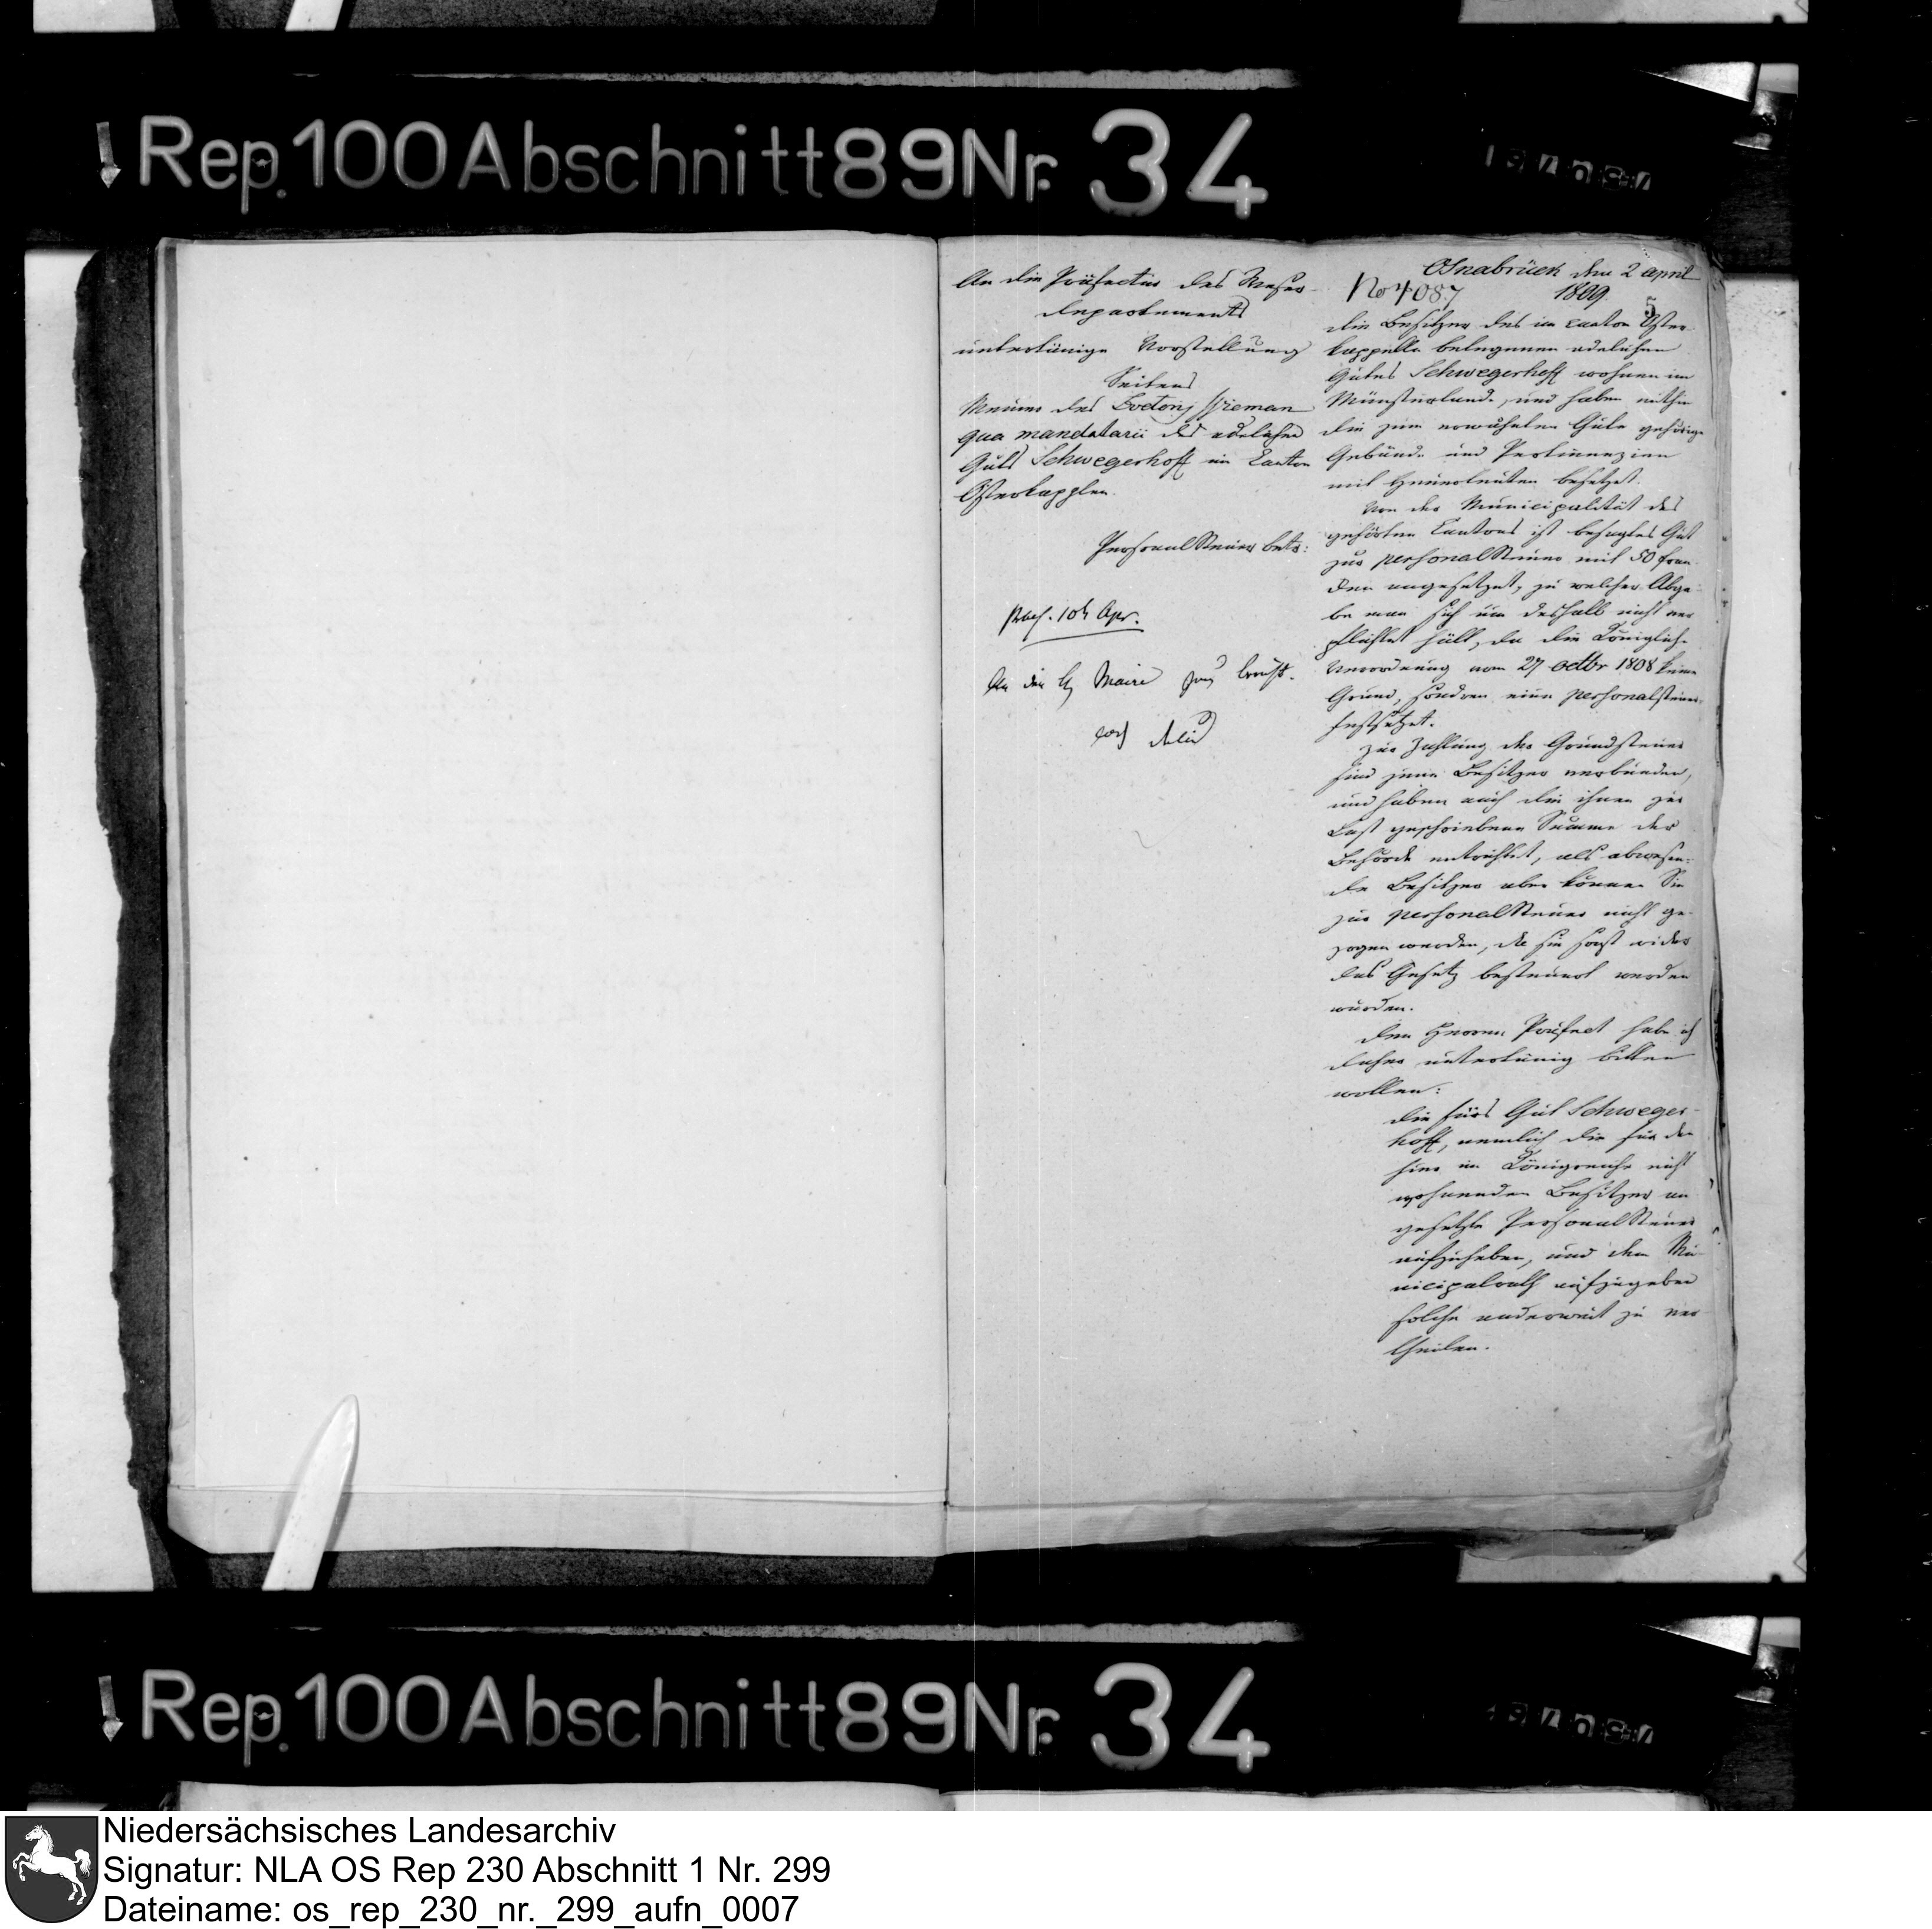 Rep. 100 Abschnitt 89 Nr. 34
An die Präfectur des Weser-
departements
unterthänige Vorstellung
Seitens
Meiner des Doctoris
qua mandatarii des adelichen
Guts Schwegerhoff im Canton
Ostercappeln.
Personalsteuer betr:
praes. 10t Apr.
An den H Maire zum
Osnabrück den 2 april
1809.
No 4087
5
die Besitzer des im Canton Oster-
kappeln belegenen adelichen
Gutes Schwegerhoff wohnen im
Münsterlande, und haben mithin
die zum erwähnten Gute gehörige
Gebäude und Pertinenzien
mit Heuerleuten besetzet.
Von der Municipalität des
gehörten Cantons ist besagtes Gut
zur personalsteuer mit 50 fran-
ken angesetzet, zu welcher Abga-
be man sich um deshalb nicht ver
pflichtet hält, da die Königliche
Verordnung vom 27 octbr 1808 keine
Grund, sondern eine personalsteuer
festsetzet.
Zur Zahlung der Grundsteuer
sind jene Besitzer verbunden,
und haben auch die ihnen zur
Last geschriebene Summe der
Behörde entrichtet, als abwesen-
de Besitzer aber können Sie
zur personalsteuer nicht ge-
zogen werden, da sie sonst wider
das Gesetz besteuert werden
würden.
Den Herrn Präfect habe ich
daher unterthänig bitten
wollen:
die fürs Gut Schweger-
hoff, nemlich die für den
hier im Königreiche nicht
wohnenden Besitzer an
gesetzte Personalsteuer
aufzuheben, und dem Mu-
nicipalrath aufzugeben
solche anderweit zu ver
theilen.
Rep. 100 Abschnitt 89 Nr. 34
Niedersächsisches Landesarchiv
Signatur: NLA OS Rep 230 Abschnitt 1 Nr. 299
Dateiname: os_rep_230_nr._299_aufn_0007